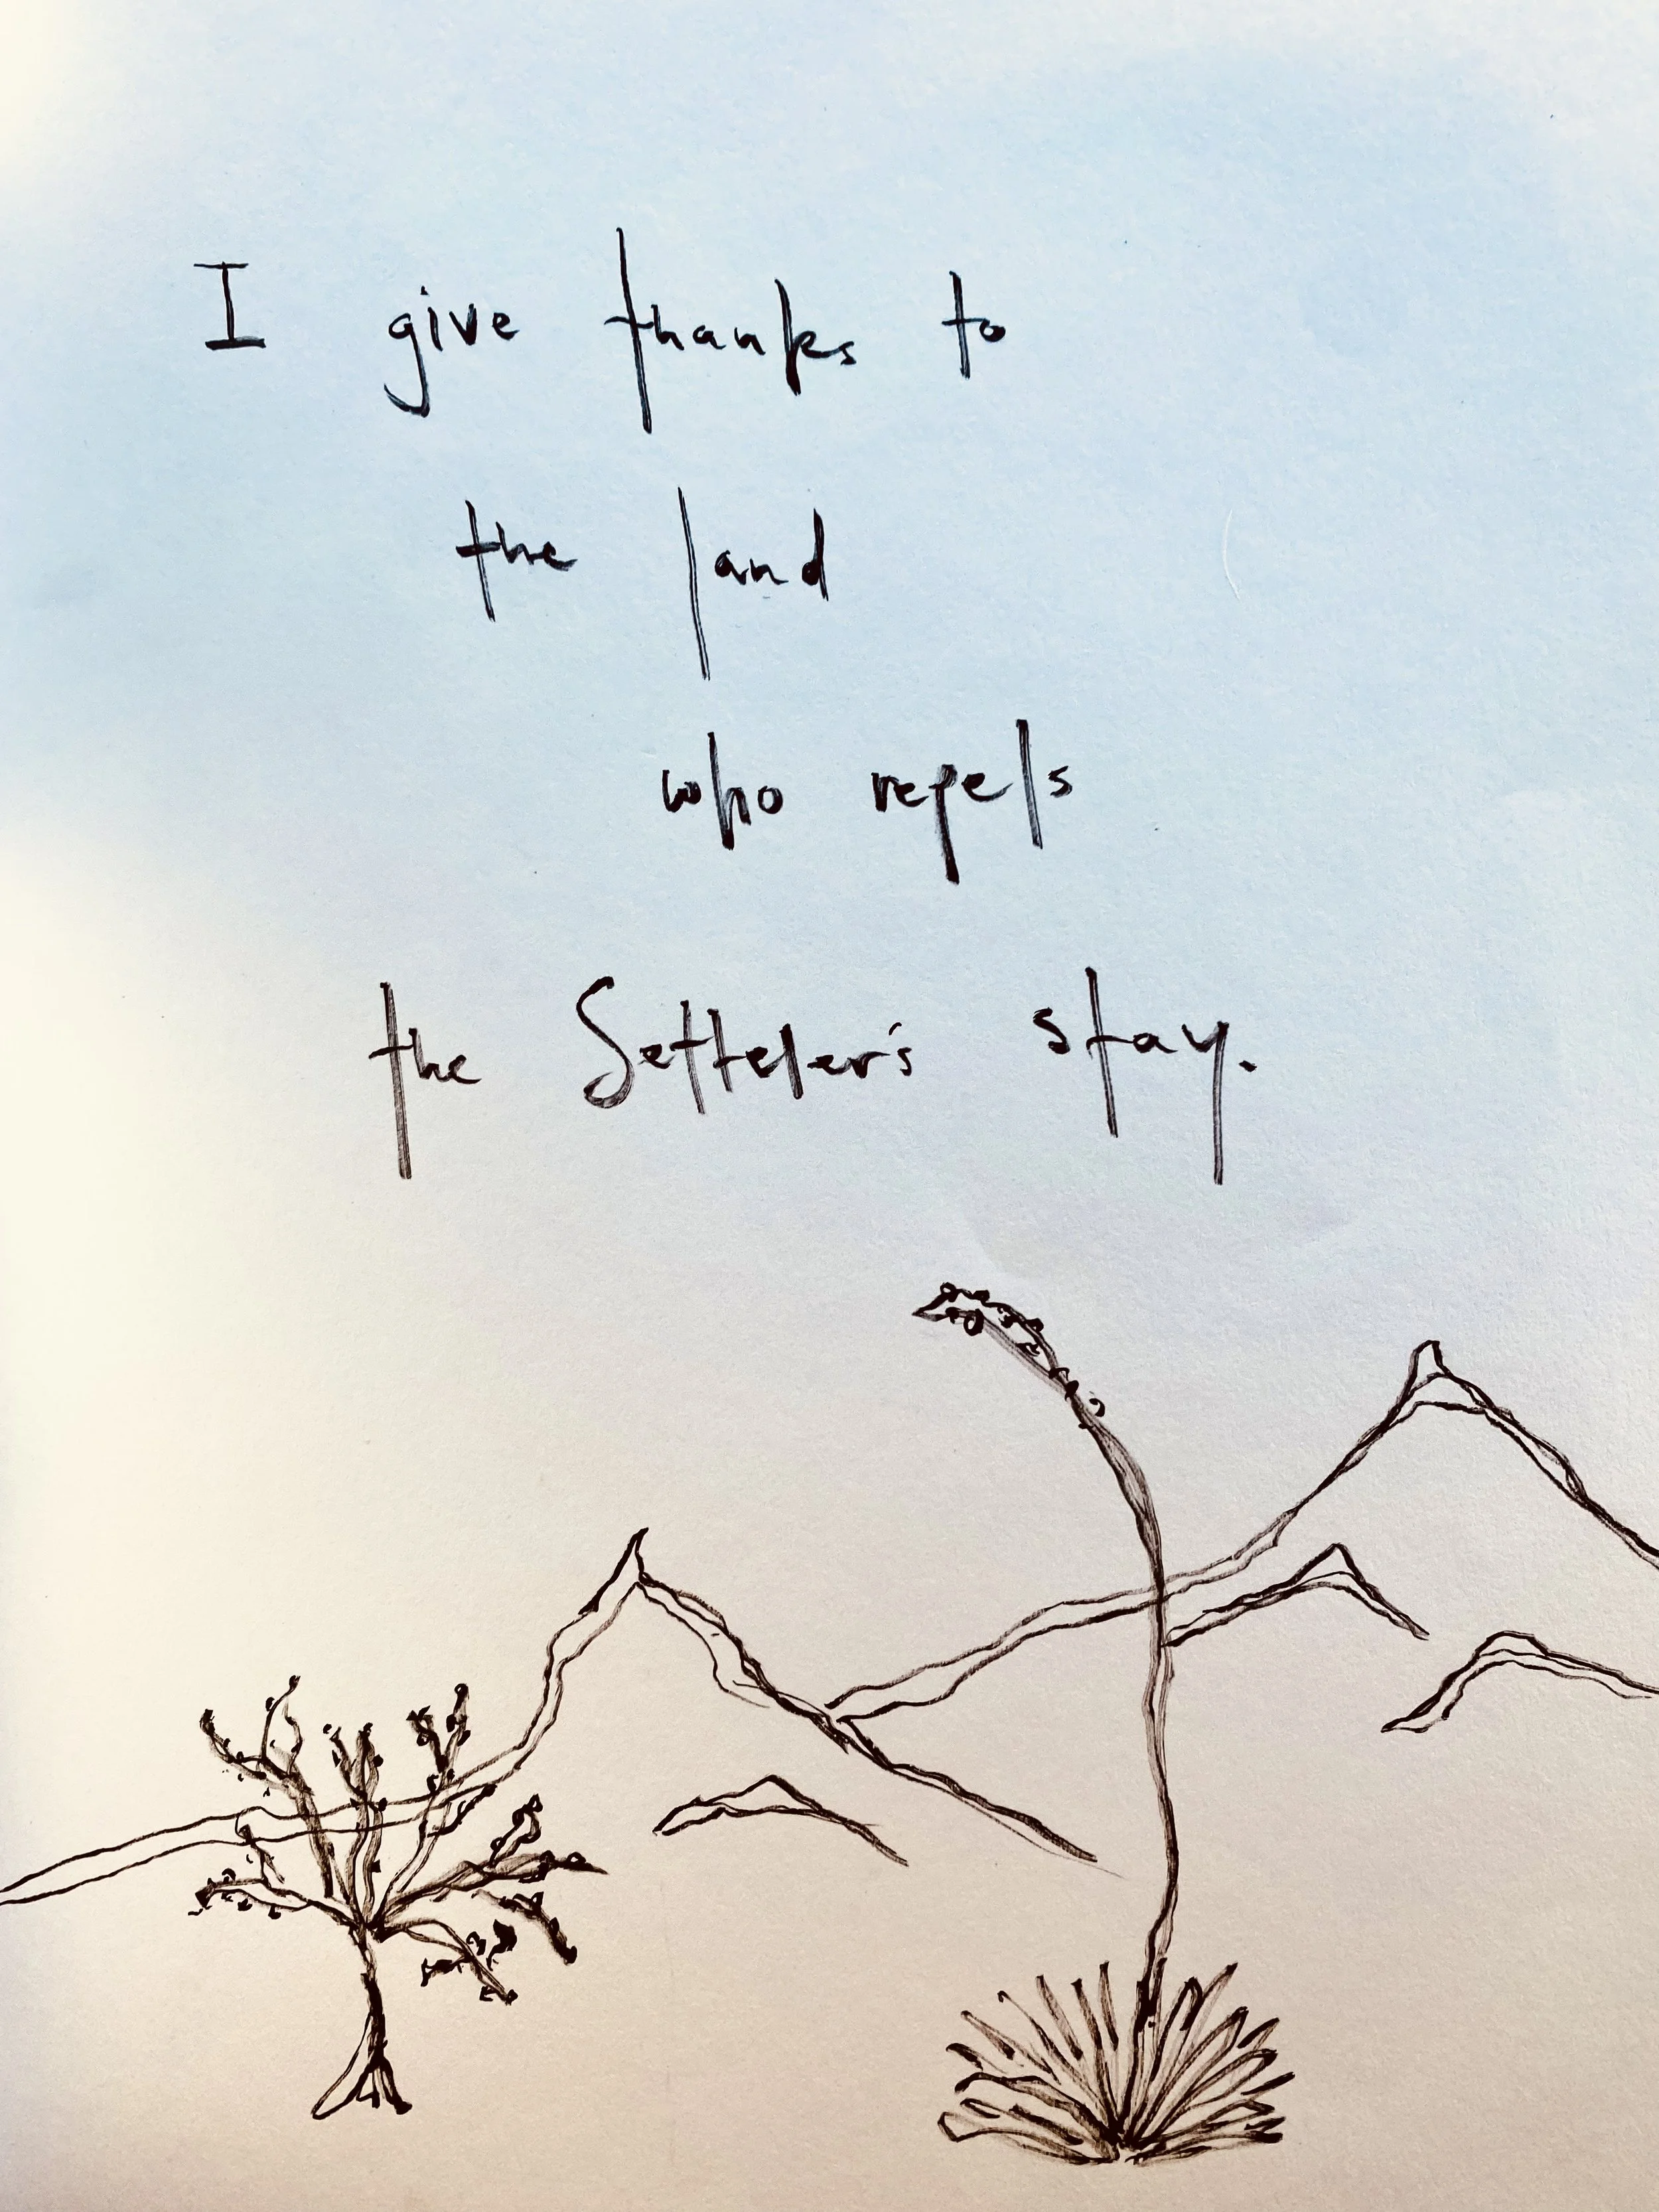 I give thanks to
the land
who repels
the Setteler's stay.